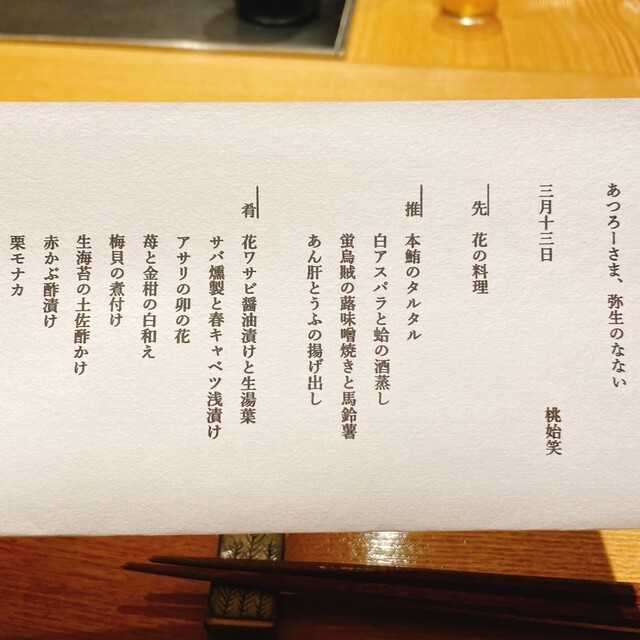 あつろーさま、弥生のなない
三月十三日　桃始笑
先　花の料理
推　本鮪のタルタル
白アスパラと蛤の酒蒸し
蛍烏賊の蕗味噌焼きと馬鈴薯
あん肝とうふの揚げ出し
肴　花ワサビ醤油漬けと生湯葉
サバ燻製と春キャベツ浅漬け
アサリの卯の花
苺と金柑の白和え
梅貝の煮付け
生海苔の土佐酢かけ
赤かぶ酢漬け
栗モナカ